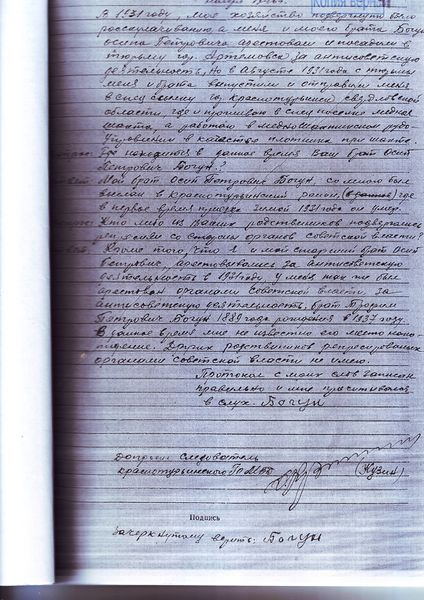 КОПИЯ ВЕРНА
В 1931 году, мое хозяйство подвергнуто было
раскулачиванию а меня и моего брата Богун
Осипа Петровича арестовали и посадили в
тюрьму гор. Артемовск за антисоветскую
деятельность, но в Августе 1931 года с тюрьмы
меня и брата выпустили и отправили меня
в спец ссылку в Краснотурьинск Свердловской
области, где и проживаю в спец поселке Медная
шахта, а работаю в Медно-Шахтинском рудо-
управлении в качестве плотника при шахте.
Где находится в данное время Ваш брат Осип
Петрович Богун.
Мой брат Осип Петрович Богун со мною был
выслан в Краснотурьинский район, где
в первое время приезда зимой 1931 года он умер.
Кто либо из Ваших родственников подвергались
репрессии со стороны органов советской власти?
Кроме того, что я и мой старший брат Осип
Петрович, арестовывались за антисоветскую
деятельность в 1931 году, у меня так же был
арестован органами советской власти за
антисоветскую деятельность, брат
Петрович Богун 1889 года рождения в 1937 году.
В данное время мне не известно его место нахо-
ждение. Других родственников репрессированных
органами советской власти не имею.
Протокол с моих слов записан
правильно и мне прочитывался
в слух. Богун
Допросил следователь
Краснотурьинского (Кузин)
Подпись
Зачеркнутому верить: Богун